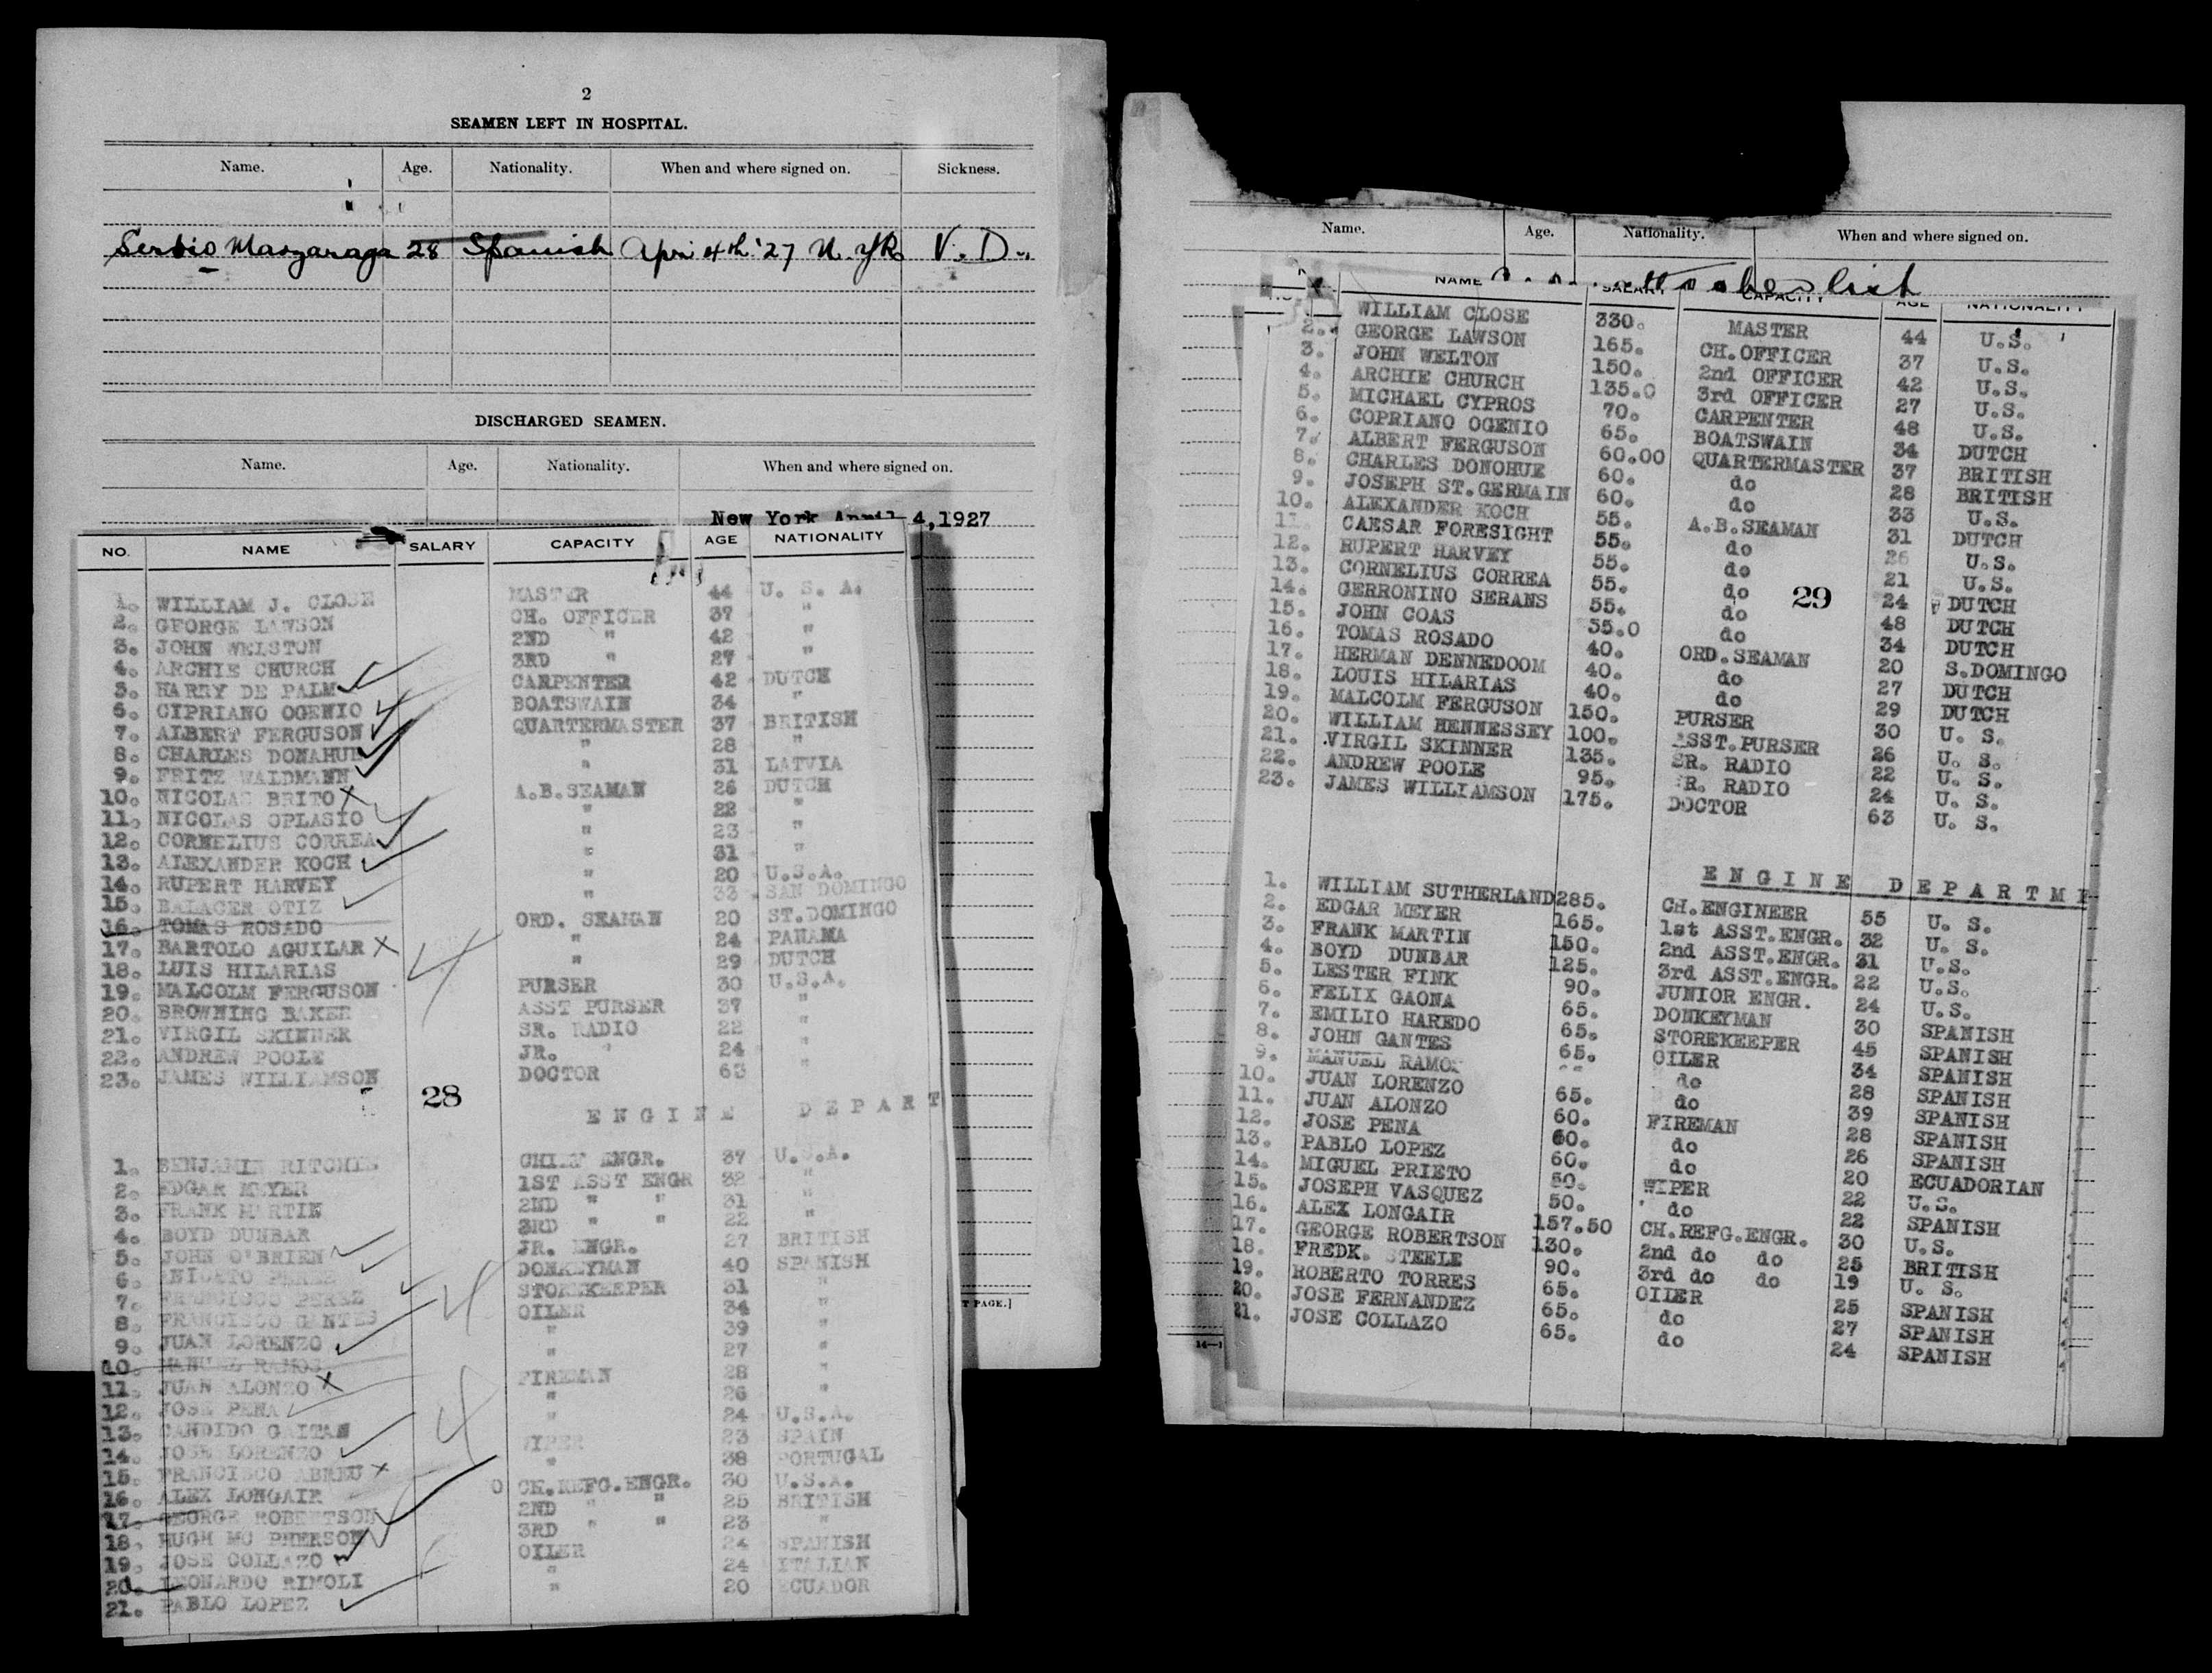 2
SEAMEN LEFT IN HOSPITAL.
Name. Age. Nationality. When and where signed on. Sickness.
Serbio Maszaraga 28 Spanish Apri 4th '27 N. Yk. V. D.
DISCHARGED SEAMEN.
Name. Age. Nationality. When and where signed on.
New York April 4, 1927
NO. NAME SALARY CAPACITY AGE NATIONALITY
1. WILLIAM J. CLOSE MASTER 44 U. S. A.
2. GEORGE LAWSON CH. OFFICER 37 "
3. JOHN WELSTON 2ND " 42 "
4. ARCHIE CHURCH 3RD " 27 "
5. HARRY DE PALM CARPENTER 42 DUTCH
6. CIPRIANO OGENIO BOATSWAIN 34 "
7. ALBERT FERGUSON QUARTERMASTER 37 BRITISH
8. CHARLES DONAHUE " 28 "
9. FRITZ WALDMANN " 31 LATVIA
10. NICOLAS BRITO A.B.SEAMAN 26 DUTCH
11. NICOLAS OPLASIO " 22 "
12. CORNELIUS CORREA " 23 "
13. ALEXANDER KOCH " 31 "
14. RUPERT HARVEY " 20 U.S.A.
15. BALAGER OTIZ " 33 SAN DOMINGO
16. TOMAS ROSADO ORD. SEAMAN 20 ST.DOMINGO
17. BARTOLO AGUILAR " 24 PANAMA
18. LUIS HILARIAS " 29 DUTCH
19. MALCOLM FERGUSON PURSER 30 U.S.A.
20. BROWNING BAKER ASST PURSER 37 "
21. VIRGIL SKINNER SR. RADIO 22 "
22. ANDREW POOLE JR. " 24 "
23. JAMES WILLIAMSON DOCTOR 63 "
28
ENGINE DEPART
1. BENJAMIN RITCHIE CHIEF ENGR. 37 U.S.A.
2. EDGAR MEYER 1ST ASST ENGR 32 "
3. FRANK MARTIN 2ND " " 31 "
4. BOYD DUNBAR 3RD " " 22 "
5. JOHN O'BRIEN JR. ENGR. 27 BRITISH
6. PEREZ DONKEYMAN 40 SPANISH
7. FRANCISCO PEREZ STOREKEEPER 31 "
8. FRANCISCO GANTES OILER 34 "
9. JUAN LORENZO " 39 "
10. MANUEL RAMOS " 27 "
11. JUAN ALONZO FIREMAN 28 "
12. JOSE PENA " 26 "
13. CANDIDO GAITAN " 24 U.S.A.
14. JOSE LORENZO WIPER 23 SPAIN
15. FRANCISCO ABREU " 38 PORTUGAL
16. ALEX LONGAIR CH.REFG.ENGR. 30 U.S.A.
17. GEORGE ROBERTSON 2ND " " 25 BRITISH
18. HUGH MC PHERSON 3RD " " 23 "
19. JOSE COLLAZO OILER 24 SPANISH
20. LEONARDO RIMOLI " 24 ITALIAN
21. PABLO LOPEZ " 20 ECUADOR
T PAGE.]
Name. Age. Nationality. When and where signed on.
list
NAME SALARY CAPACITY AGE NATIONALITY
WILLIAM CLOSE 330. MASTER 44 U.S.
2. GEORGE LAWSON 165. CH.OFFICER 37 U.S.
3. JOHN WELTON 150. 2nd OFFICER 42 U.S.
4. ARCHIE CHURCH 135.0 3rd OFFICER 27 U.S.
5. MICHAEL CYPROS 70. CARPENTER 48 U.S.
6. COPRIANO OGENIO 65. BOATSWAIN 34 DUTCH
7. ALBERT FERGUSON 60.00 QUARTERMASTER 37 BRITISH
8. CHARLES DONOHUE 60. do 28 BRITISH
9. JOSEPH ST.GERMAIN 60. do 33 U.S.
10. ALEXANDER KOCH 55. A.B.SEAMAN 31 DUTCH
11. CAESAR FORESIGHT 55. do 26 U.S.
12. RUPERT HARVEY 55. do 21 U.S.
13. CORNELIUS CORREA 55. do 24 DUTCH
14. GERRONINO SERANS 55. do 48 DUTCH
15. JOHN COAS 55.0 do 34 DUTCH
16. TOMAS ROSADO 40. ORD.SEAMAN 20 S.DOMINGO
17. HERMAN DENNEDOOM 40. do 27 DUTCH
18. LOUIS HILARIAS 40. do 29 DUTCH
19. MALCOLM FERGUSON 150. PURSER 30 U. S.
20. WILLIAM HENNESSEY 100. ASST.PURSER 26 U. S.
21. VIRGIL SKINNER 135. SR. RADIO 22 U. S.
22. ANDREW POOLE 95. R. RADIO 24 U. S.
23. JAMES WILLIAMSON 175. DOCTOR 63 U. S.
29
ENGINE DEPARTME
1. WILLIAM SUTHERLAND 285. CH.ENGINEER 55 U. S.
2. EDGAR MEYER 165. 1st ASST.ENGR. 32 U. S.
3. FRANK MARTIN 150. 2nd ASST.ENGR. 31 U.S.
4. BOYD DUNBAR 125. 3rd ASST.ENGR. 22 U.S.
5. LESTER FINK 90. JUNIOR ENGR. 24 U.S.
6. FELIX GAONA 65. DONKEYMAN 30 SPANISH
7. EMILIO HAREDO 65. STOREKEEPER 45 SPANISH
8. JOHN GANTES 65. OILER 34 SPANISH
9. MANUEL RAMOS do 28 SPANISH
10. JUAN LORENZO 65. do 39 SPANISH
11. JUAN ALONZO 60. FIREMAN 28 SPANISH
12. JOSE PENA 60. do 26 SPANISH
13. PABLO LOPEZ 60. do 20 ECUADORIAN
14. MIGUEL PRIETO 50. WIPER 22 U.S.
15. JOSEPH VASQUEZ 50. do 22 SPANISH
16. ALEX LONGAIR 157.50 CH.REFG.ENGR. 30 U.S.
17. GEORGE ROBERTSON 130. 2nd do do 25 BRITISH
18. FREDK. STEELE 90. 3rd do do 19 U. S.
19. ROBERTO TORRES 65. OILER 25 SPANISH
20. JOSE FERNANDEZ 65. do 27 SPANISH
21. JOSE COLLAZO 65. do 24 SPANISH